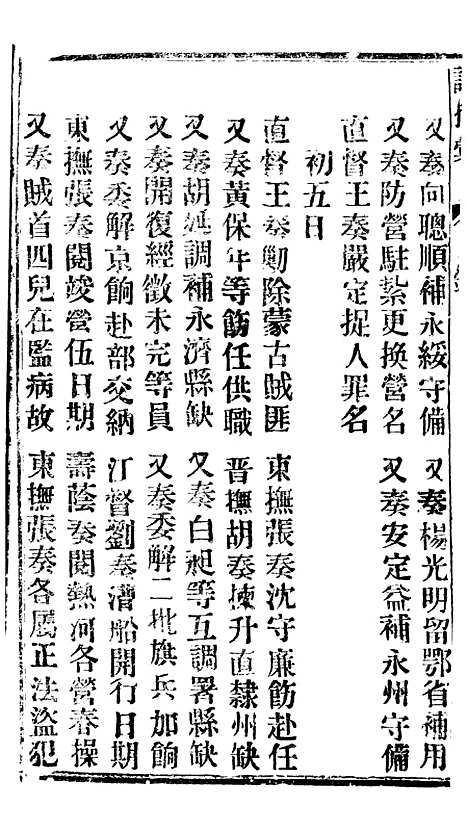 又奏向聰順補永綏守備　又奏楊光明留鄂省補用
又奏防營駐紮更換營名　又奏安定益補永州守備
直督王奏嚴定捉人罪名
初五日
直督王奏勦除蒙古賊匪　東撫張奏沈守廉飭赴任
又奏黃保年等飭任供職　晋撫胡奏揀升直隸州缺
又奏胡延調補永濟縣缺　又奏白昶等互調署縣缺
又奏開復經徵未完等員　又奏委解二批旗兵加餉
又奏委解京餉赴部交納　江督劉奏漕船開行日期
東撫張奏閱竣營伍日期　壽蔭奏閱熱河各營春操
又奏賊首四兒在監病故　東撫張奏各屬正法盜犯